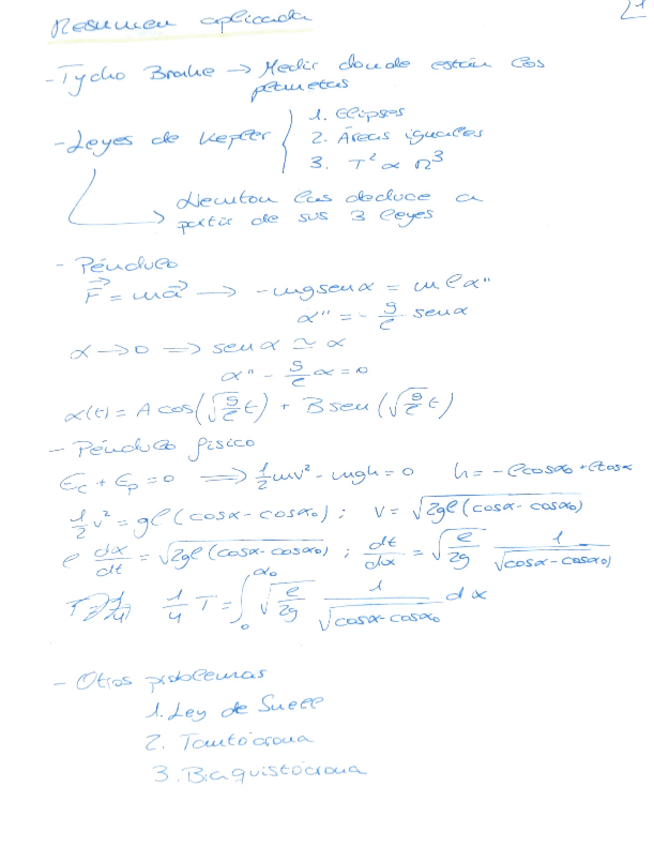 Resumen aplicada 21
- Tycho Brahe → Medir donde están los
planetas
- Leyes de Kepler { 1. Elipses
2. Áreas iguales
3. T² ∝ r³
Newton las deduce a
partir de sus 3 leyes
- Péndulo
F⃗ = ma⃗ → -mg sen α = m l α''
α'' = - g/l sen α
α → 0 ⟹ sen α ≃ α
α'' - g/l α = 0
α(t) = A cos(√(g/l) t) + B sen(√(g/l) t)
- Péndulo físico
Ec + Ep = 0 ⟹ 1/2 mv² - mgh = 0 h = -l cos α₀ + l cos α
1/2 v² = gl (cos α - cos α₀) ; v = √(2gl (cos α - cos α₀))
l dα/dt = √(2gl (cos α - cos α₀)) ; dt/dα = √(l/2g) 1/√(cos α - cos α₀)
1/4 T = ∫₀^α₀ √(l/2g) 1/√(cos α - cos α₀) dα
- Otros problemas
1. Ley de Snell
2. Tautócrona
3. Braquistócrona